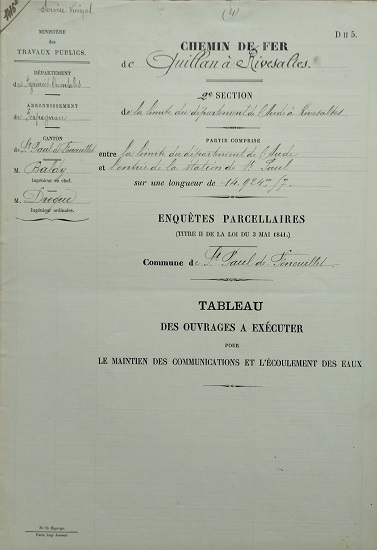 (4)
D H 5.
MINISTÈRE
des
TRAVAUX PUBLICS.
DÉPARTEMENT
des Pyrénées Orientales
ARRONDISSEMENT
de Perpignan
CANTON
de St Paul de Fenouillet
M.
Ingénieur en chef.
M.
Ingénieur ordinaire.
CHEMIN DE FER
de Quillan à Rivesaltes
2e SECTION
de la limite du département de l'Aude à Rivesaltes
PARTIE COMPRISE
entre la limite du département de l'Aude
et l'entrée de la station de St Paul
sur une longueur de 14.924m 17.
ENQUÊTES PARCELLAIRES
(TITRE II DE LA LOI DU 3 MAI 1841.)
Commune de St Paul de Fenouillet
TABLEAU
DES OUVRAGES A EXÉCUTER
POUR
LE MAINTIEN DES COMMUNICATIONS ET L'ÉCOULEMENT DES EAUX
Paris, Imp.